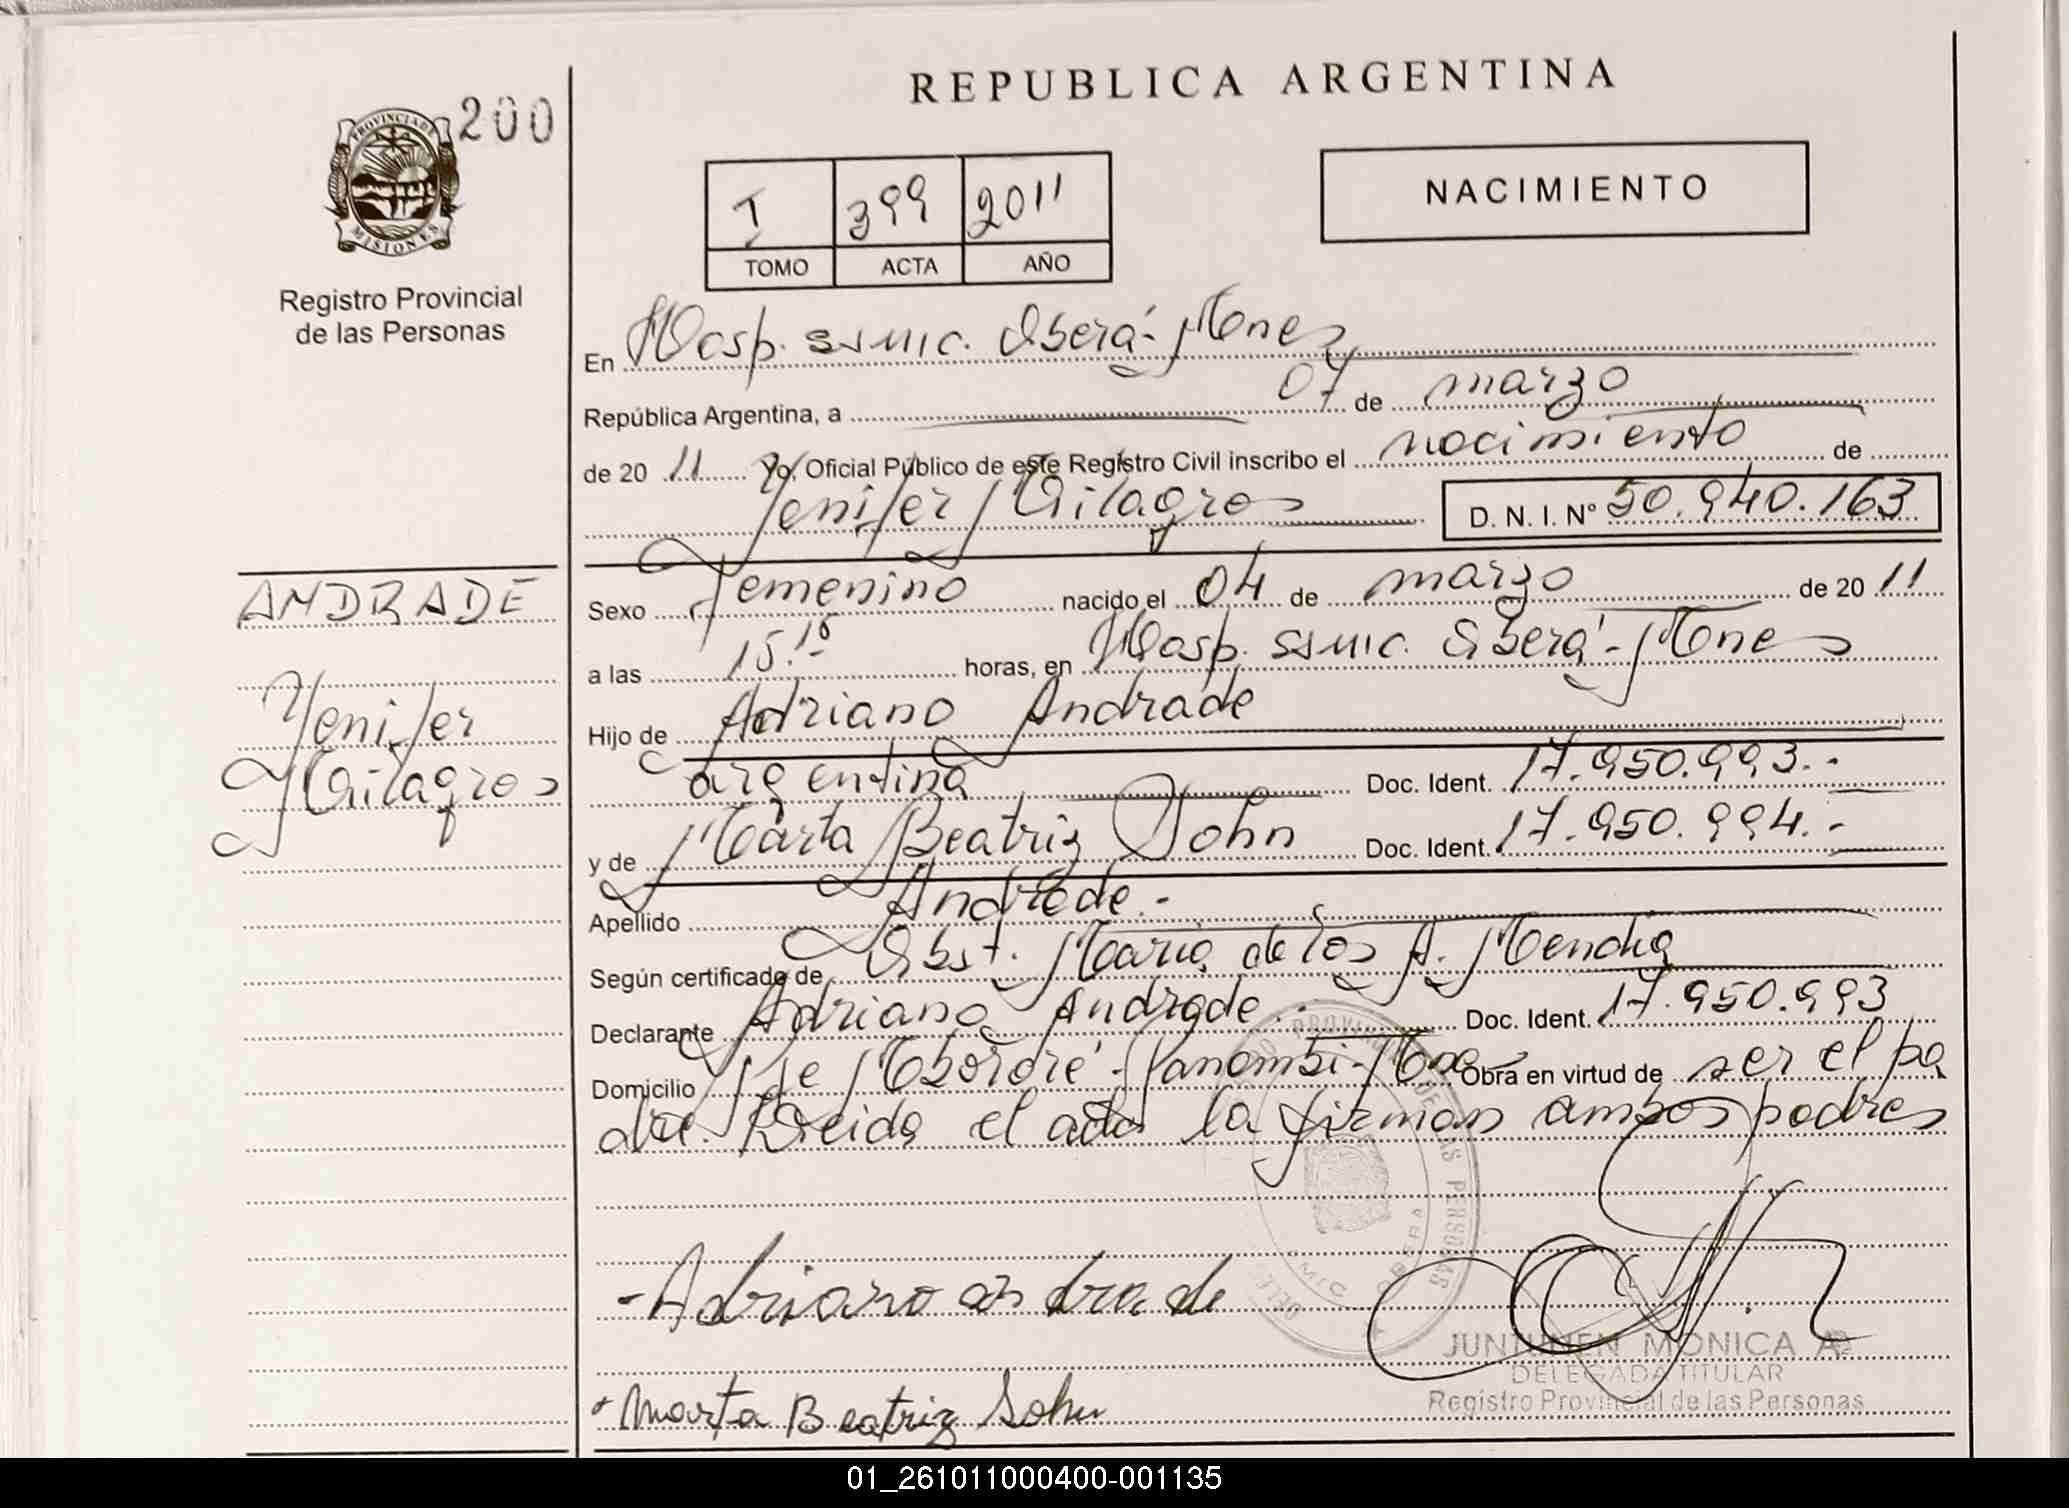 REPUBLICA ARGENTINA
200
PROVINCIA DE
MISIONES
Registro Provincial
de las Personas
I 399 2011
TOMO ACTA AÑO
NACIMIENTO
En Hosp. SSMIC. Oberá - Mnes
República Argentina, a 07 de marzo
de 20 11 Yo, Oficial Público de este Registro Civil inscribo el nacimiento de
Yenifer Milagros D. N. I. Nº 50.940.163
ANDRADE
Yenifer
Milagros
Sexo Femenino nacido el 04 de marzo de 20 11
a las 15.15 horas, en Hosp. SSMIC. Oberá - Mnes
Hijo de Adriano Andrade
argentina Doc. Ident. 17.950.993.-
y de Marta Beatriz Sohn Doc. Ident. 17.950.994.-
Apellido Andrade.-
Según certificado de Obst. María de los A. Mendia
Declarante Adriano Andrade.- Doc. Ident. 17.950.993
Domicilio Mbororé - Panambi - Mnes Obra en virtud de ser el pa
dre. Leida el acta la firman ambos padres
- Adriano andrade
Marta Beatriz Sohn
JUNTUNEN MONICA
DELEGADA TITULAR
Registro Provincial de las Personas
01_261011000400-001135